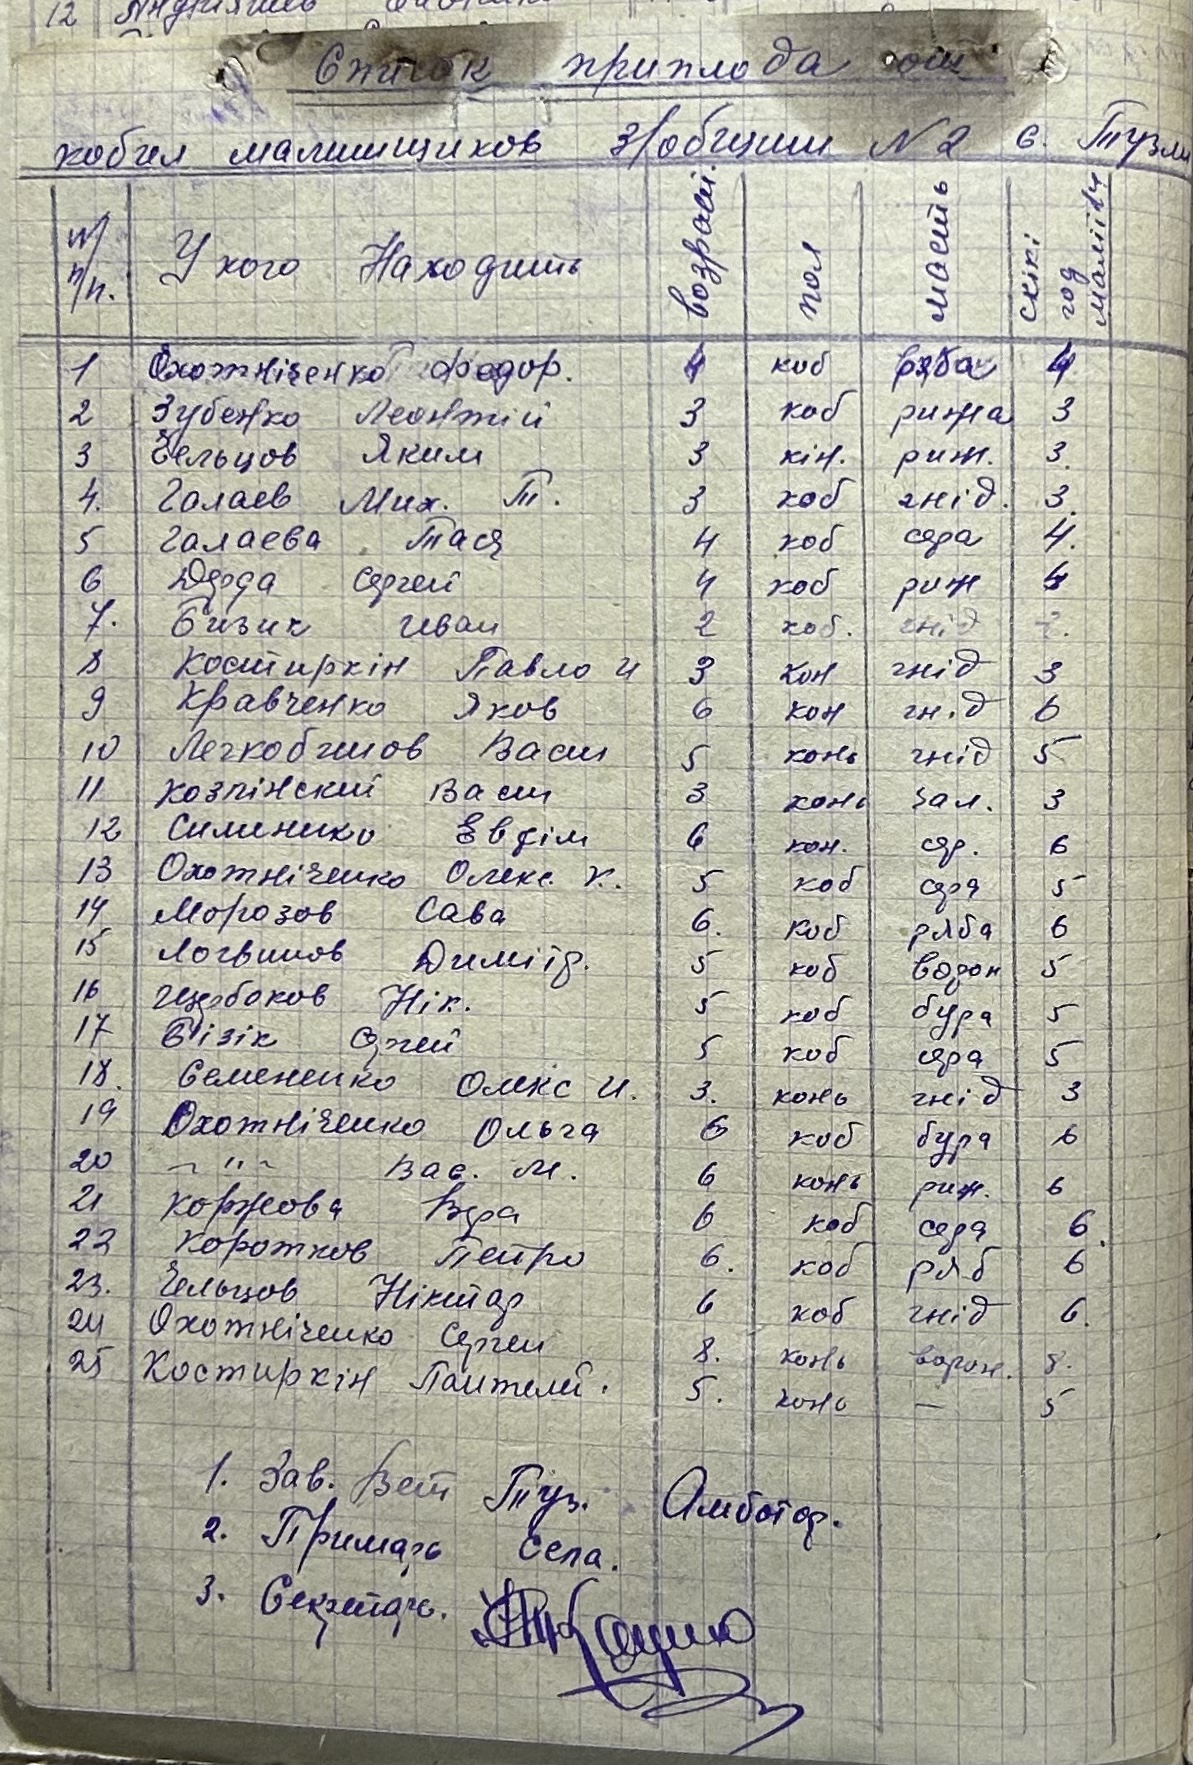 12
Список приплода от
кобил малишщиков З/общини №2 с. Тузли
п/п. У кого Находить возраст. пол масть скікі год
1 Охотніченко Федор. 4 коб ряба 4
2 Зубенко Леонтій 3 коб рижа 3
3 Чельцов Яким 3 кін. риж. 3.
4. Галаев Мих. Т. 3 коб гнід. 3.
5 Галаева Тася 4 коб сера 4.
6 Дерда Сергей 4 коб риж 4
7. Бизик Иван 2 коб. гнід 2.
8 Костиркін Павло И 3 кон гнід 3
9 Кравченко Яков 6 кон гнід 6
10 Легкобитов Васил 5 конь гнід 5
11 Козлінский Васил 3 конь зал. 3
12 Симиненко Евфім 6 кон. сер. 6
13 Охотніченко Олекс. К. 5 коб сера 5
14 Морозов Сава 6. коб ряба 6
15 Логвинов Димітр. 5 коб ворон 5
16 Щербаков Нік. 5 коб бура 5
17 Бізік Сергей 5 коб сера 5
18. Семененко Олекс И. 3. конь гнід 3
19 Охотніченко Ольга 6 коб бура 6
20 ~ " ~ Вас. М. 6 конь риж. 6
21 Коржова Вера 6 коб сера 6.
22 Коротков Петро 6. коб ряб 6
23. Чельцов Ніктар 6 коб гнід 6.
24 Охотніченко Сергей 8. конь ворон. 8.
25 Костиркін Пантелей. 5. конь — 5
1. Зав. Вет Туз. Амботор.
2. Примарь Села.
3. Секретарь.